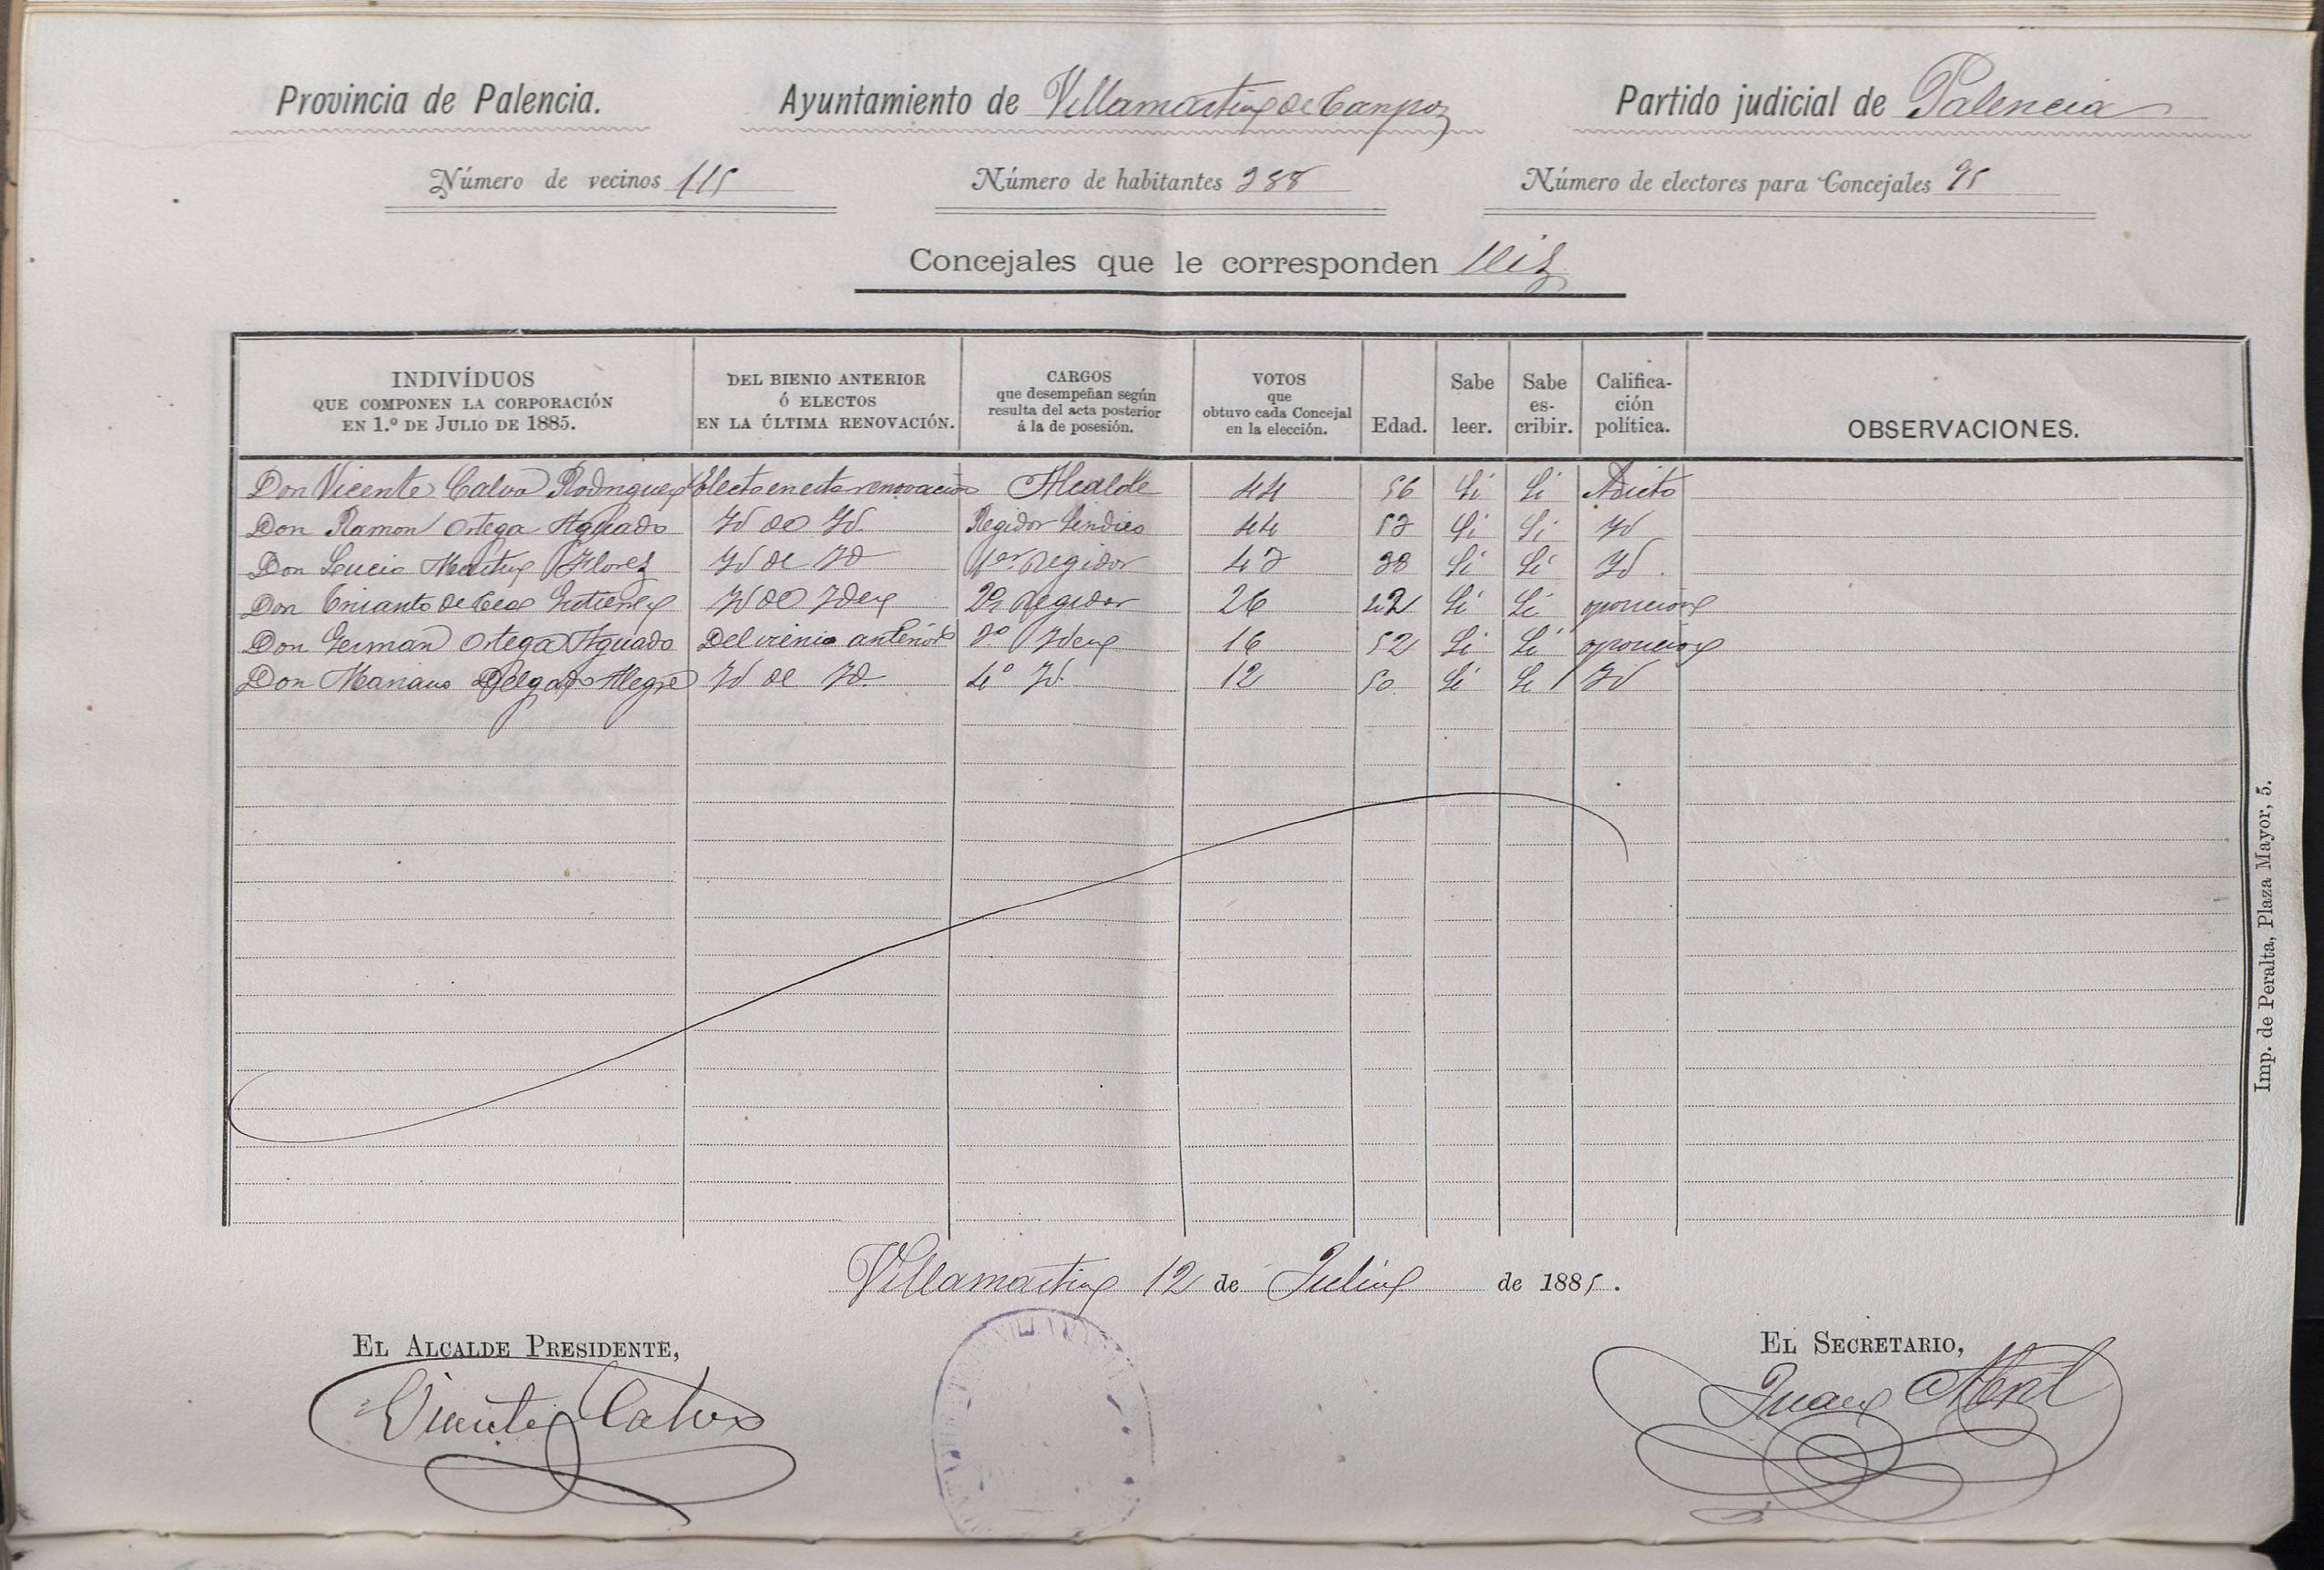 Provincia de Palencia. Ayuntamiento de Villamartin de Campos Partido judicial de Palencia
Número de vecinos 115 Número de habitantes 388 Número de electores para Concejales 95
Concejales que le corresponden seis
INDIVÍDUOS QUE COMPONEN LA CORPORACIÓN EN 1.º DE JULIO DE 1885. DEL BIENIO ANTERIOR Ó ELECTOS EN LA ÚLTIMA RENOVACIÓN. CARGOS que desempeñan según resulta del acta posterior á la de posesión. VOTOS que obtuvo cada Concejal en la elección. Edad. Sabe leer. Sabe es-cribir. Califica-ción política. OBSERVACIONES.
Don Vicente Calvo Rodriguez Electo en esta renovacion Alcalde 44 56 Si Si Adicto
Don Ramon Ortega Aguado Id de Id. Regidor Sindico 44 53 Si Si Id
Don Lucio Martin Florez Id de Id 1er Regidor 43 38 Si Si Id.
Don Crisanto de Cea Gutierrez Id de Idem 2º Regidor 26 42 Si Si oposicion
Don German Ortega Aguado Del vienio anterior 3º Idem 16 52 Si Si oposicion
Don Mariano Delgado Alegre Id de Id. 4º Id. 12 50 Si Si Id
Imp. de Peralta, Plaza Mayor, 5.
Villamartin 12 de Julio de 1885.
EL ALCALDE PRESIDENTE, EL SECRETARIO,
Vicente Calvo Juan Abril